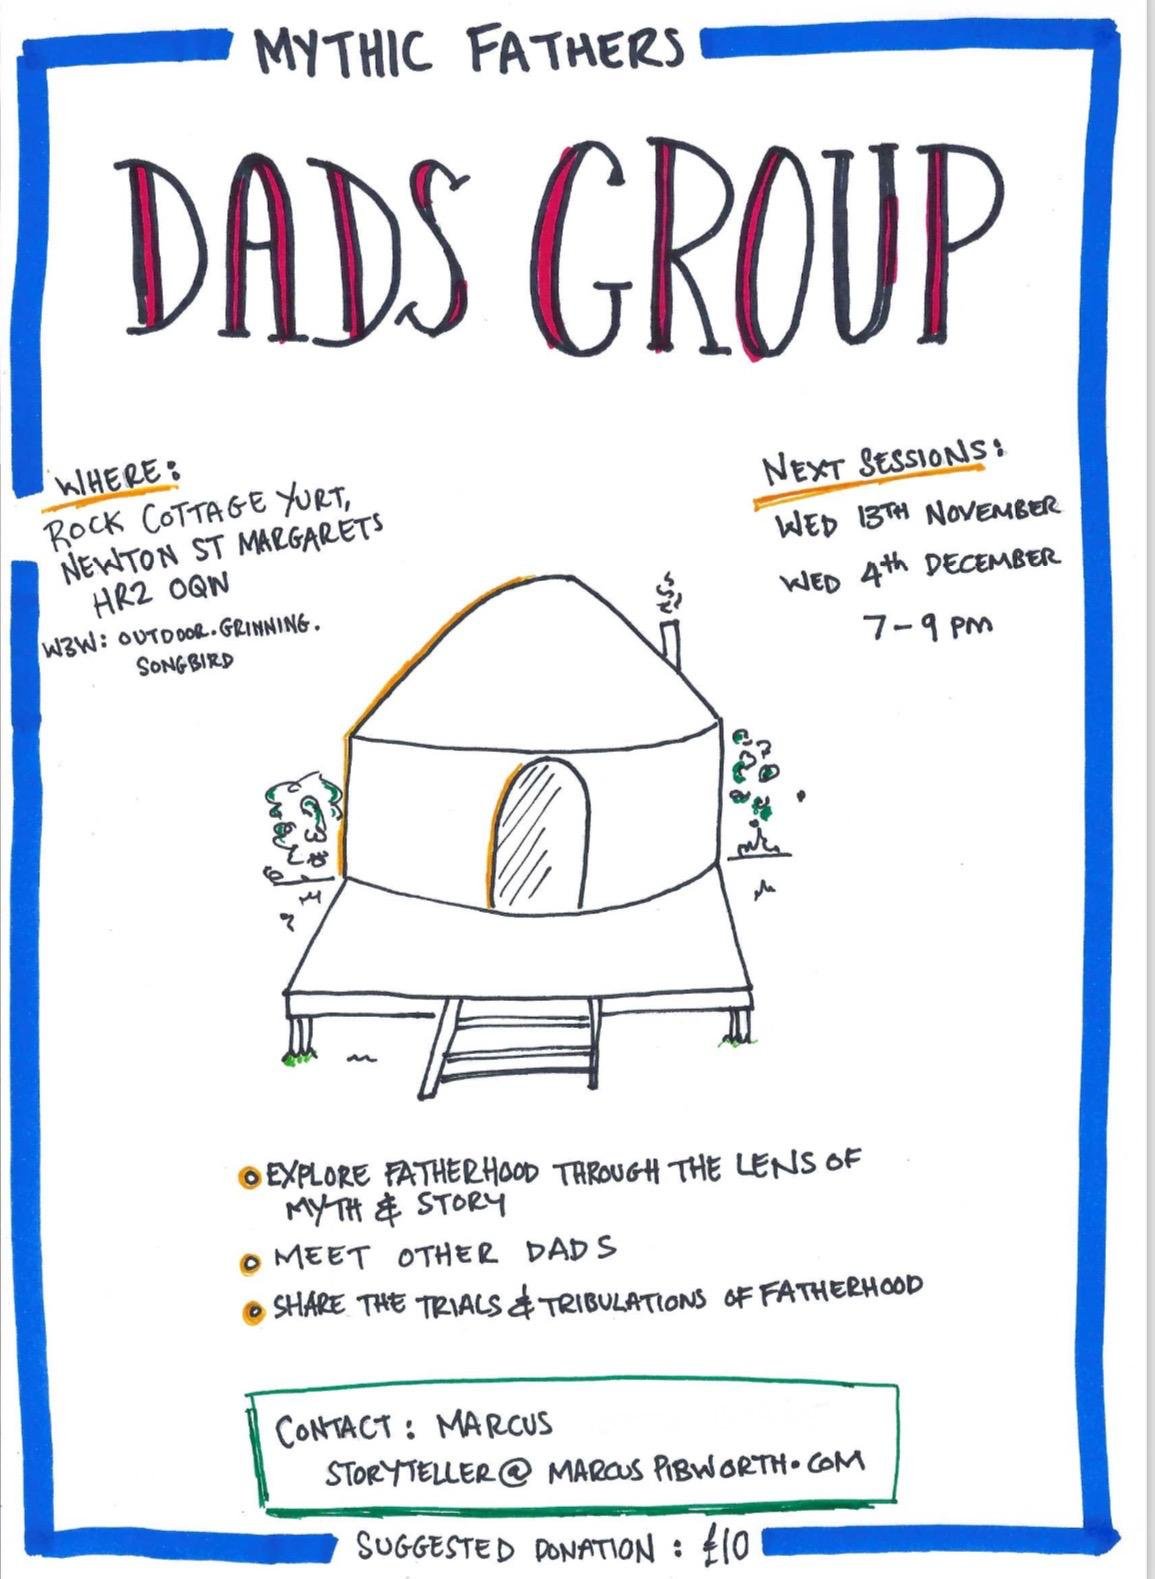 MYTHIC FATHERS
DADS GROUP
WHERE:
ROCK COTTAGE YURT,
NEWTON ST MARGARETS
HR2 0QN
W3W: OUTDOOR.GRINNING.
SONGBIRD
NEXT SESSIONS:
WED 13TH NOVEMBER
WED 4th DECEMBER
7-9 PM
EXPLORE FATHERHOOD THROUGH THE LENS OF
MYTH & STORY
MEET OTHER DADS
SHARE THE TRIALS & TRIBULATIONS OF FATHERHOOD
CONTACT: MARCUS
STORYTELLER@MARCUSPIBWORTH.COM
SUGGESTED DONATION: £10